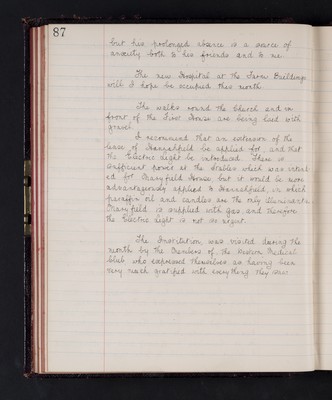 87
but his prolonged absence is a source of
anxiety both to his friends and to me.
The new Hospital at the Farm Buildings
will I hope be occupied this month.
The walks round the Church and in
front of the First House are being laid with
gravel.
I recommend that an extension of the
lease of be applied for, and that
the Electric Light be introduced. There is
sufficient power at the Stables which was intend-
ed for Craig House but it would be more
advantageously applied to in which
paraffin oil and candles are the only illuminants.
is supplied with gas and therefore
the Electric light is not so urgent.
The Institution was visited during the
month by the Members of the Medical
Club who expressed themselves as having been
very much gratified with everything they saw.